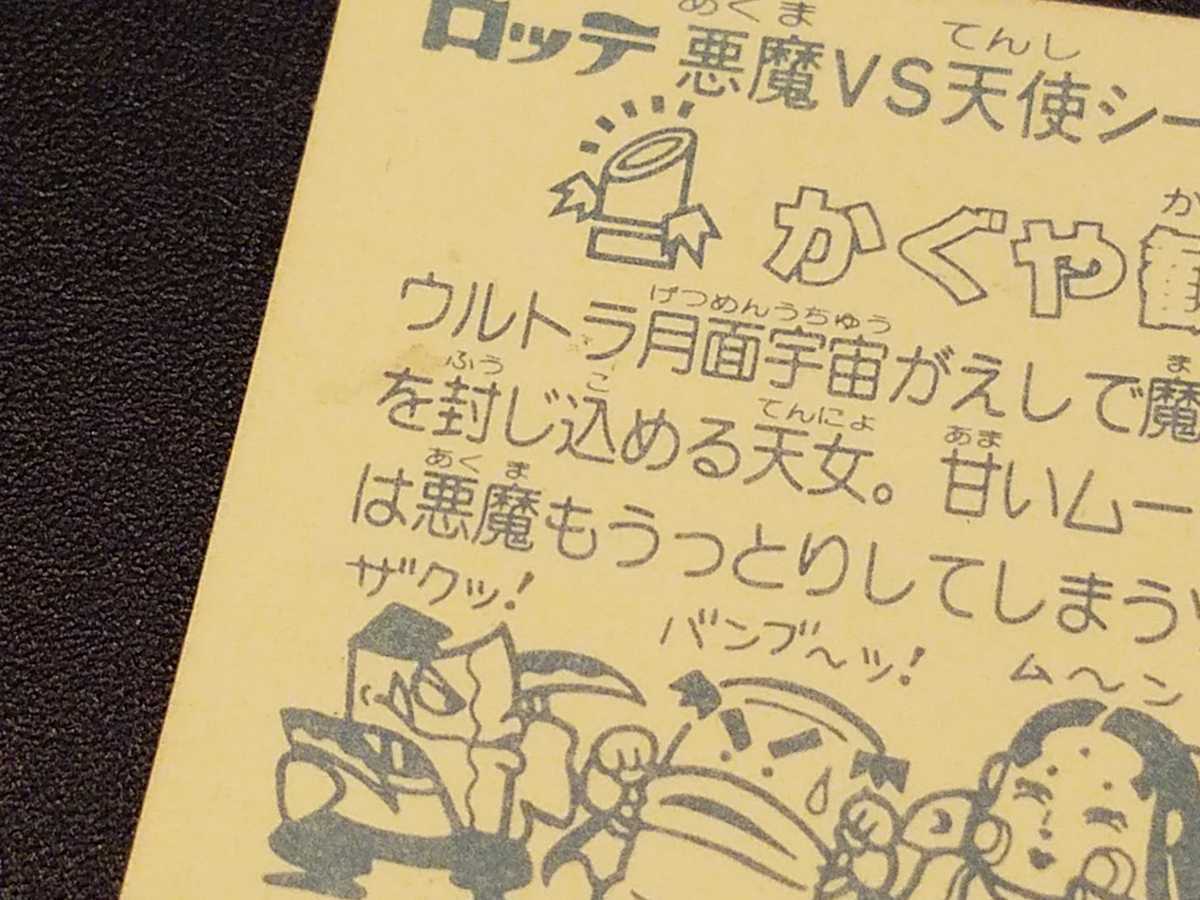 ロッテ 悪魔VS天使シー
あくま てんし
かぐや観
か
ウルトラ月面宇宙がえしで魔
げつめんうちゅう ま
を封じ込める天女。甘いムー
ふう こ てんにょ あま
は悪魔もうっとりしてしまう
あくま
ザクッ!
バンブ〜ッ!
ム〜ン